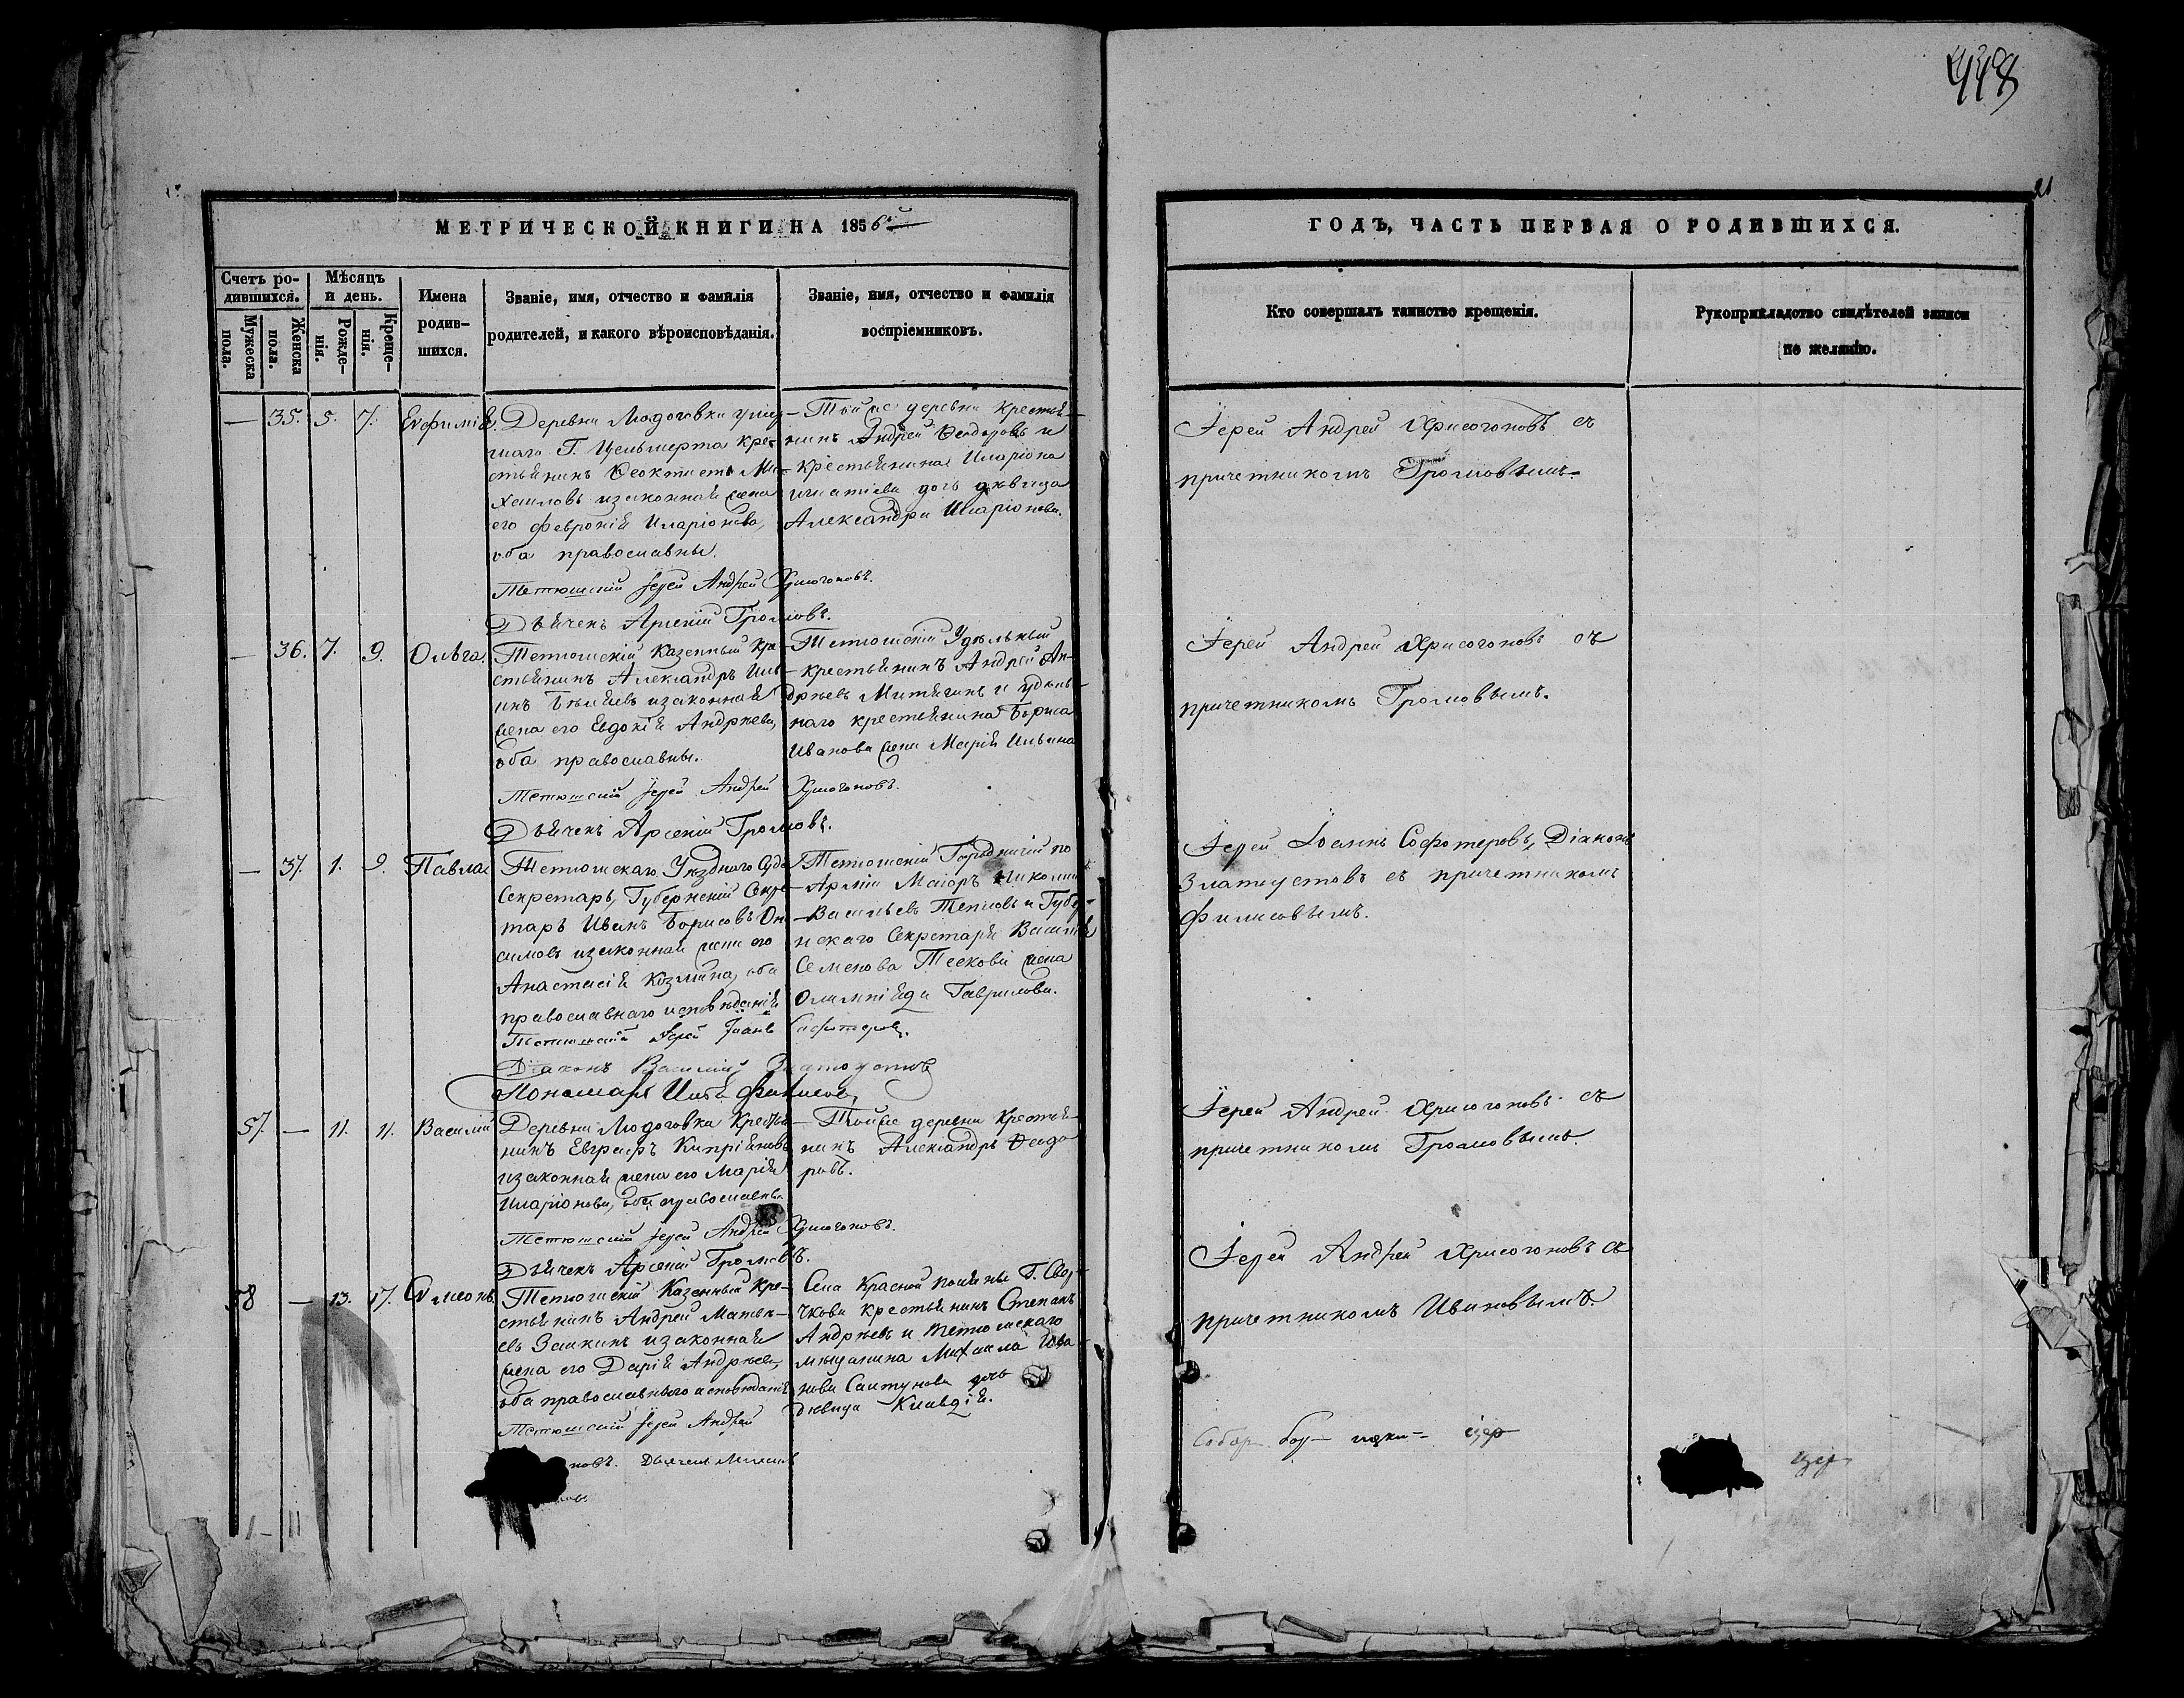 448
21
МЕТРИЧЕСКОЙ КНИГИ НА 1856й
ГОДЪ, ЧАСТЬ ПЕРВАЯ О РОДИВШИХСЯ.
Счетъ родившихся.
Мужеска пола.
Женска пола.
Мѣсяцъ и день.
Рожденія.
Крещенія.
Имена родившихся.
Званіе, имя, отчество и фамилія
родителей, и какого вѣроисповѣданія.
Званіе, имя, отчество и фамилія
воспріемниковъ.
Кто совершалъ таинство крещенія.
Рукоприкладство свидѣтелей записи
по желанію.
— 35. 5. 7. Евфимія.
Деревни Людоговки
Г. кре-
стьянинъ Ѳеоктистъ Ми-
хаиловъ и законная жена
его Февронія Иларіонова,
оба православны.
Тетюшскій Іерей Андрей Хрисогоновъ.
Дьячекъ Арсеній Громовъ.
Той же деревни крестья-
нинъ Андрей Ѳеодоровъ и
крестьянина Иларіона
Игнатіева дочь дѣвица
Александра Иларіонова.
Іерей Андрей Хрисогоновъ съ
причетникомъ Громовымъ.
— 36. 7. 9. Ольга.
Тетюшскій Казенный Кре-
стьянинъ Александръ Иль-
инъ и законная
жена его Евдокія Андрѣева,
оба православны.
Тетюшскій Іерей Андрей Хрисогоновъ.
Дьячекъ Арсеній Громовъ.
Тетюшскій Удѣльный
крестьянинъ Андрей Ан-
дрѣевъ Митягинъ и удѣль-
наго крестьянина Бориса
Иванова жена Марія Ильина
Іерей Андрей Хрисогоновъ съ
причетникомъ Громовымъ.
— 37. 1. 9. Павла
Тетюшскаго Уѣзднаго Суда
Секретарь, Губернскій Секре-
тарь Иванъ Борисовъ Они-
симовъ и законная жена его
Анастасія Козмина, оба
православнаго исповѣданія
Тетюшскій Іерей Іоаннъ Софотеровъ.
Діаконъ Василій Златоустовъ
Пономарь Филисовъ
Тетюшскій Городничій по
Арміи Маіоръ Николай
Васильевъ Тепловъ и Губер-
нскаго Секретаря Василія
Семенова жена
Олимпіяда Гаврилова.
Іерей Іоаннъ Софотеровъ, Діаконъ
Златоустовъ съ причетникомъ
Филисовымъ.
57. — 11. 11. Василій
Деревни Людоговки Крестья-
нинъ Евграфъ Кипріяновъ
и законная жена его Марія
Иларіонова, оба православны.
Тетюшскій Іерей Андрей Хрисогоновъ.
Дьячекъ Арсеній Громовъ.
Той же деревни Крестья-
нинъ Александръ Ѳеодо-
ровъ.
Іерей Андрей Хрисогоновъ съ
причетникомъ Громовымъ.
58 — 13. 17. Симеонъ.
Тетюшскій Казенный Кре-
стьянинъ Андрей Матвѣ-
евъ Заикинъ и законная
жена его Дарія Андрѣева,
оба православнаго исповѣданія
Тетюшскій Іерей Андрей
новъ. Дьячекъ
Села Красной поляны Г.
крестьянинъ Степанъ
Андрѣевъ и Тетюшскаго
мѣщанина Михаила Ива-
нова дочь
дѣвица Клавдія.
Іерей Андрей Хрисогоновъ съ
причетникомъ Ивановымъ.